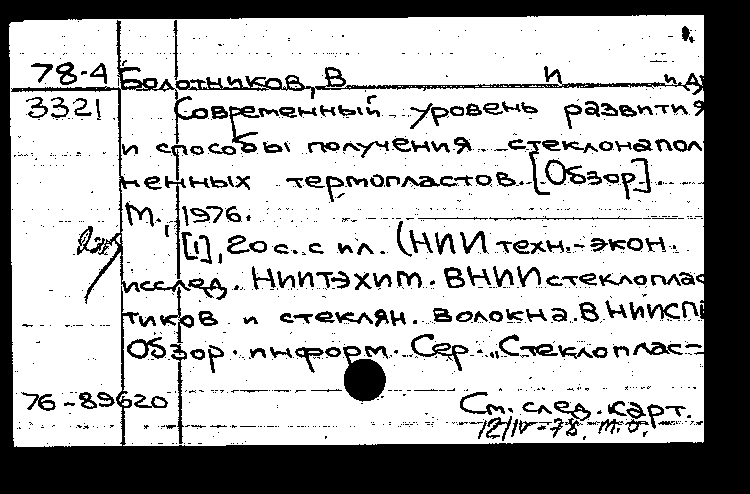 78-4 Болотников, В И и др
3321 Современный уровень развития
и способы получения стеклонапол
ненных термопластов. [Обзор].
М., 1976.
[1], 20 с. с ил. (НИИ техн.-экон.
исслед. НИИТЭХИМ. ВНИИ стеклоплас
тиков и стеклян. волокна. ВНИИСП
Обзор. информ. Сер. „Стеклоплас-
76-89620
См. след. карт.
12/IV-78. м.о.